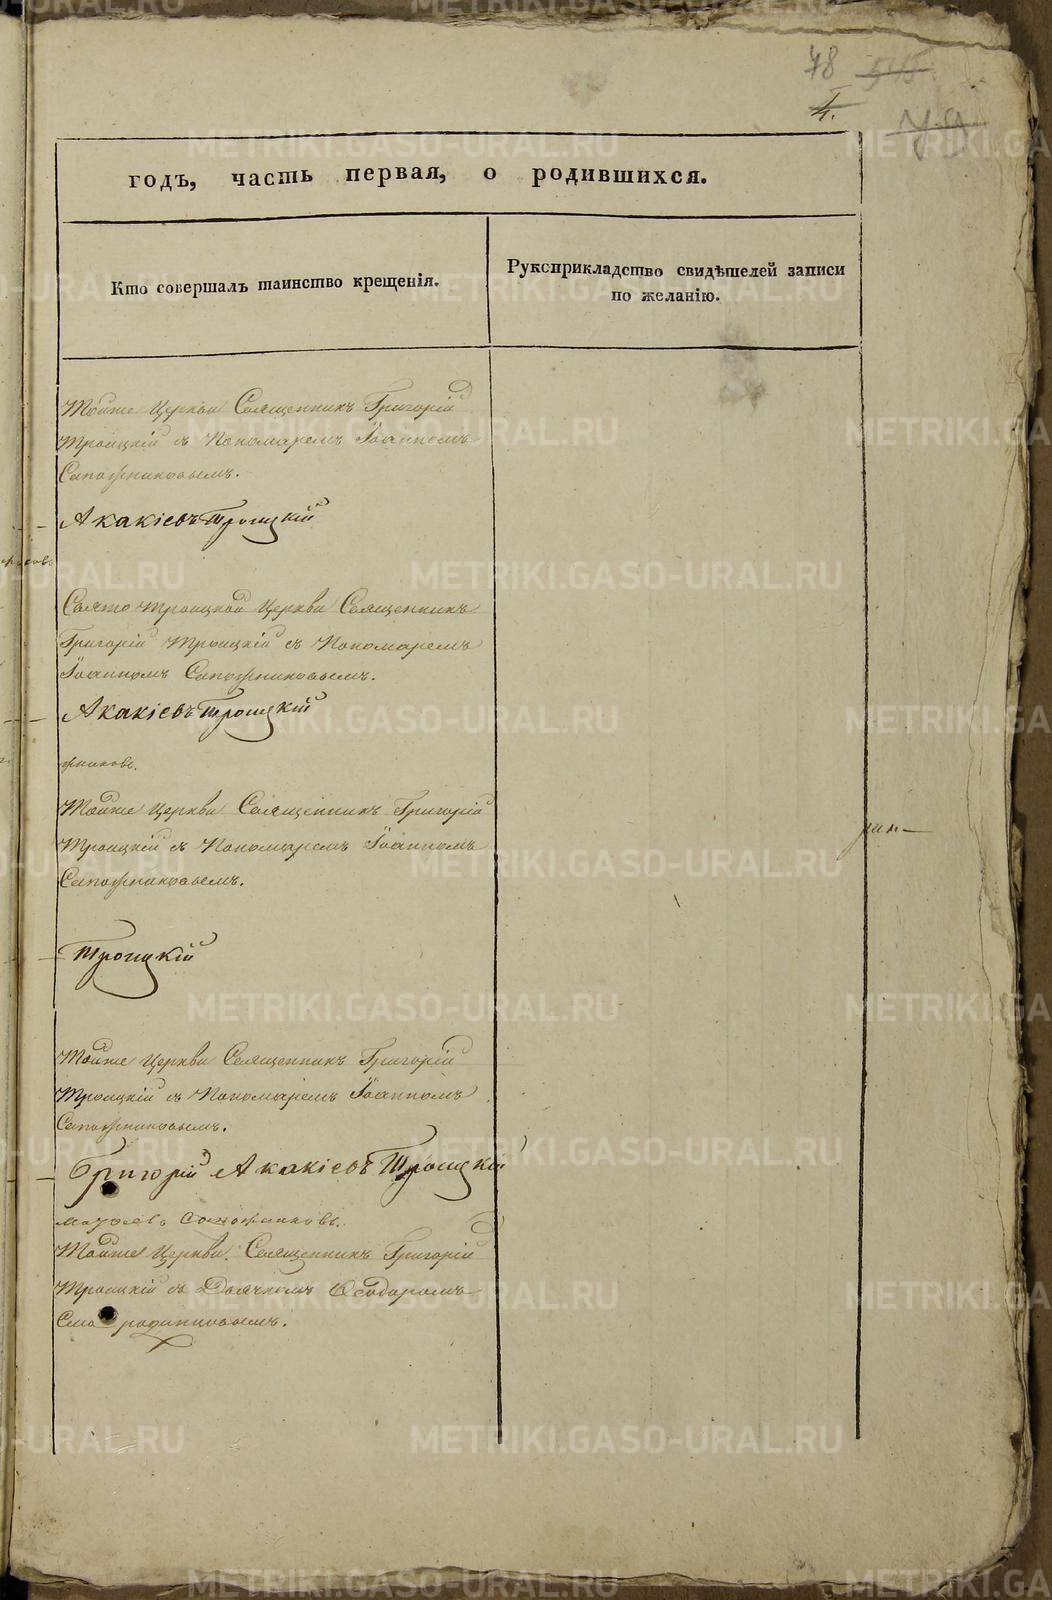 78 545
4. 79
годъ, часть первая, о родившихся.
Кто совершалъ таинство крещенія.
Рукоприкладство свидѣтелей записи
по желанію.
Тойже Церкви Священникъ Григорій
Троицкій съ Пономаремъ Іоанномъ
Сапожниковымъ.
Акакіевъ Троицкій
Свято Троицкой Церкви Священникъ
Григорій Троицкій съ Пономаремъ
Іоанномъ Сапожниковымъ.
Акакіевъ Троицкій
жниковъ.
Тойже Церкви Священникъ Григорій
Троицкій съ Пономаремъ Іоанномъ
Сапожниковымъ.
Троицкій
Тойже Церкви Священникъ Григорій
Троицкій съ Пономаремъ Іоанномъ
Сапожниковымъ.
Григорій Акакіевъ Троицкій
Сапожниковъ.
Тойже Церкви Священникъ Григорій
Троицкій съ Дьячкомъ Ѳеодоромъ
METRIKI.GASO-URAL.RU